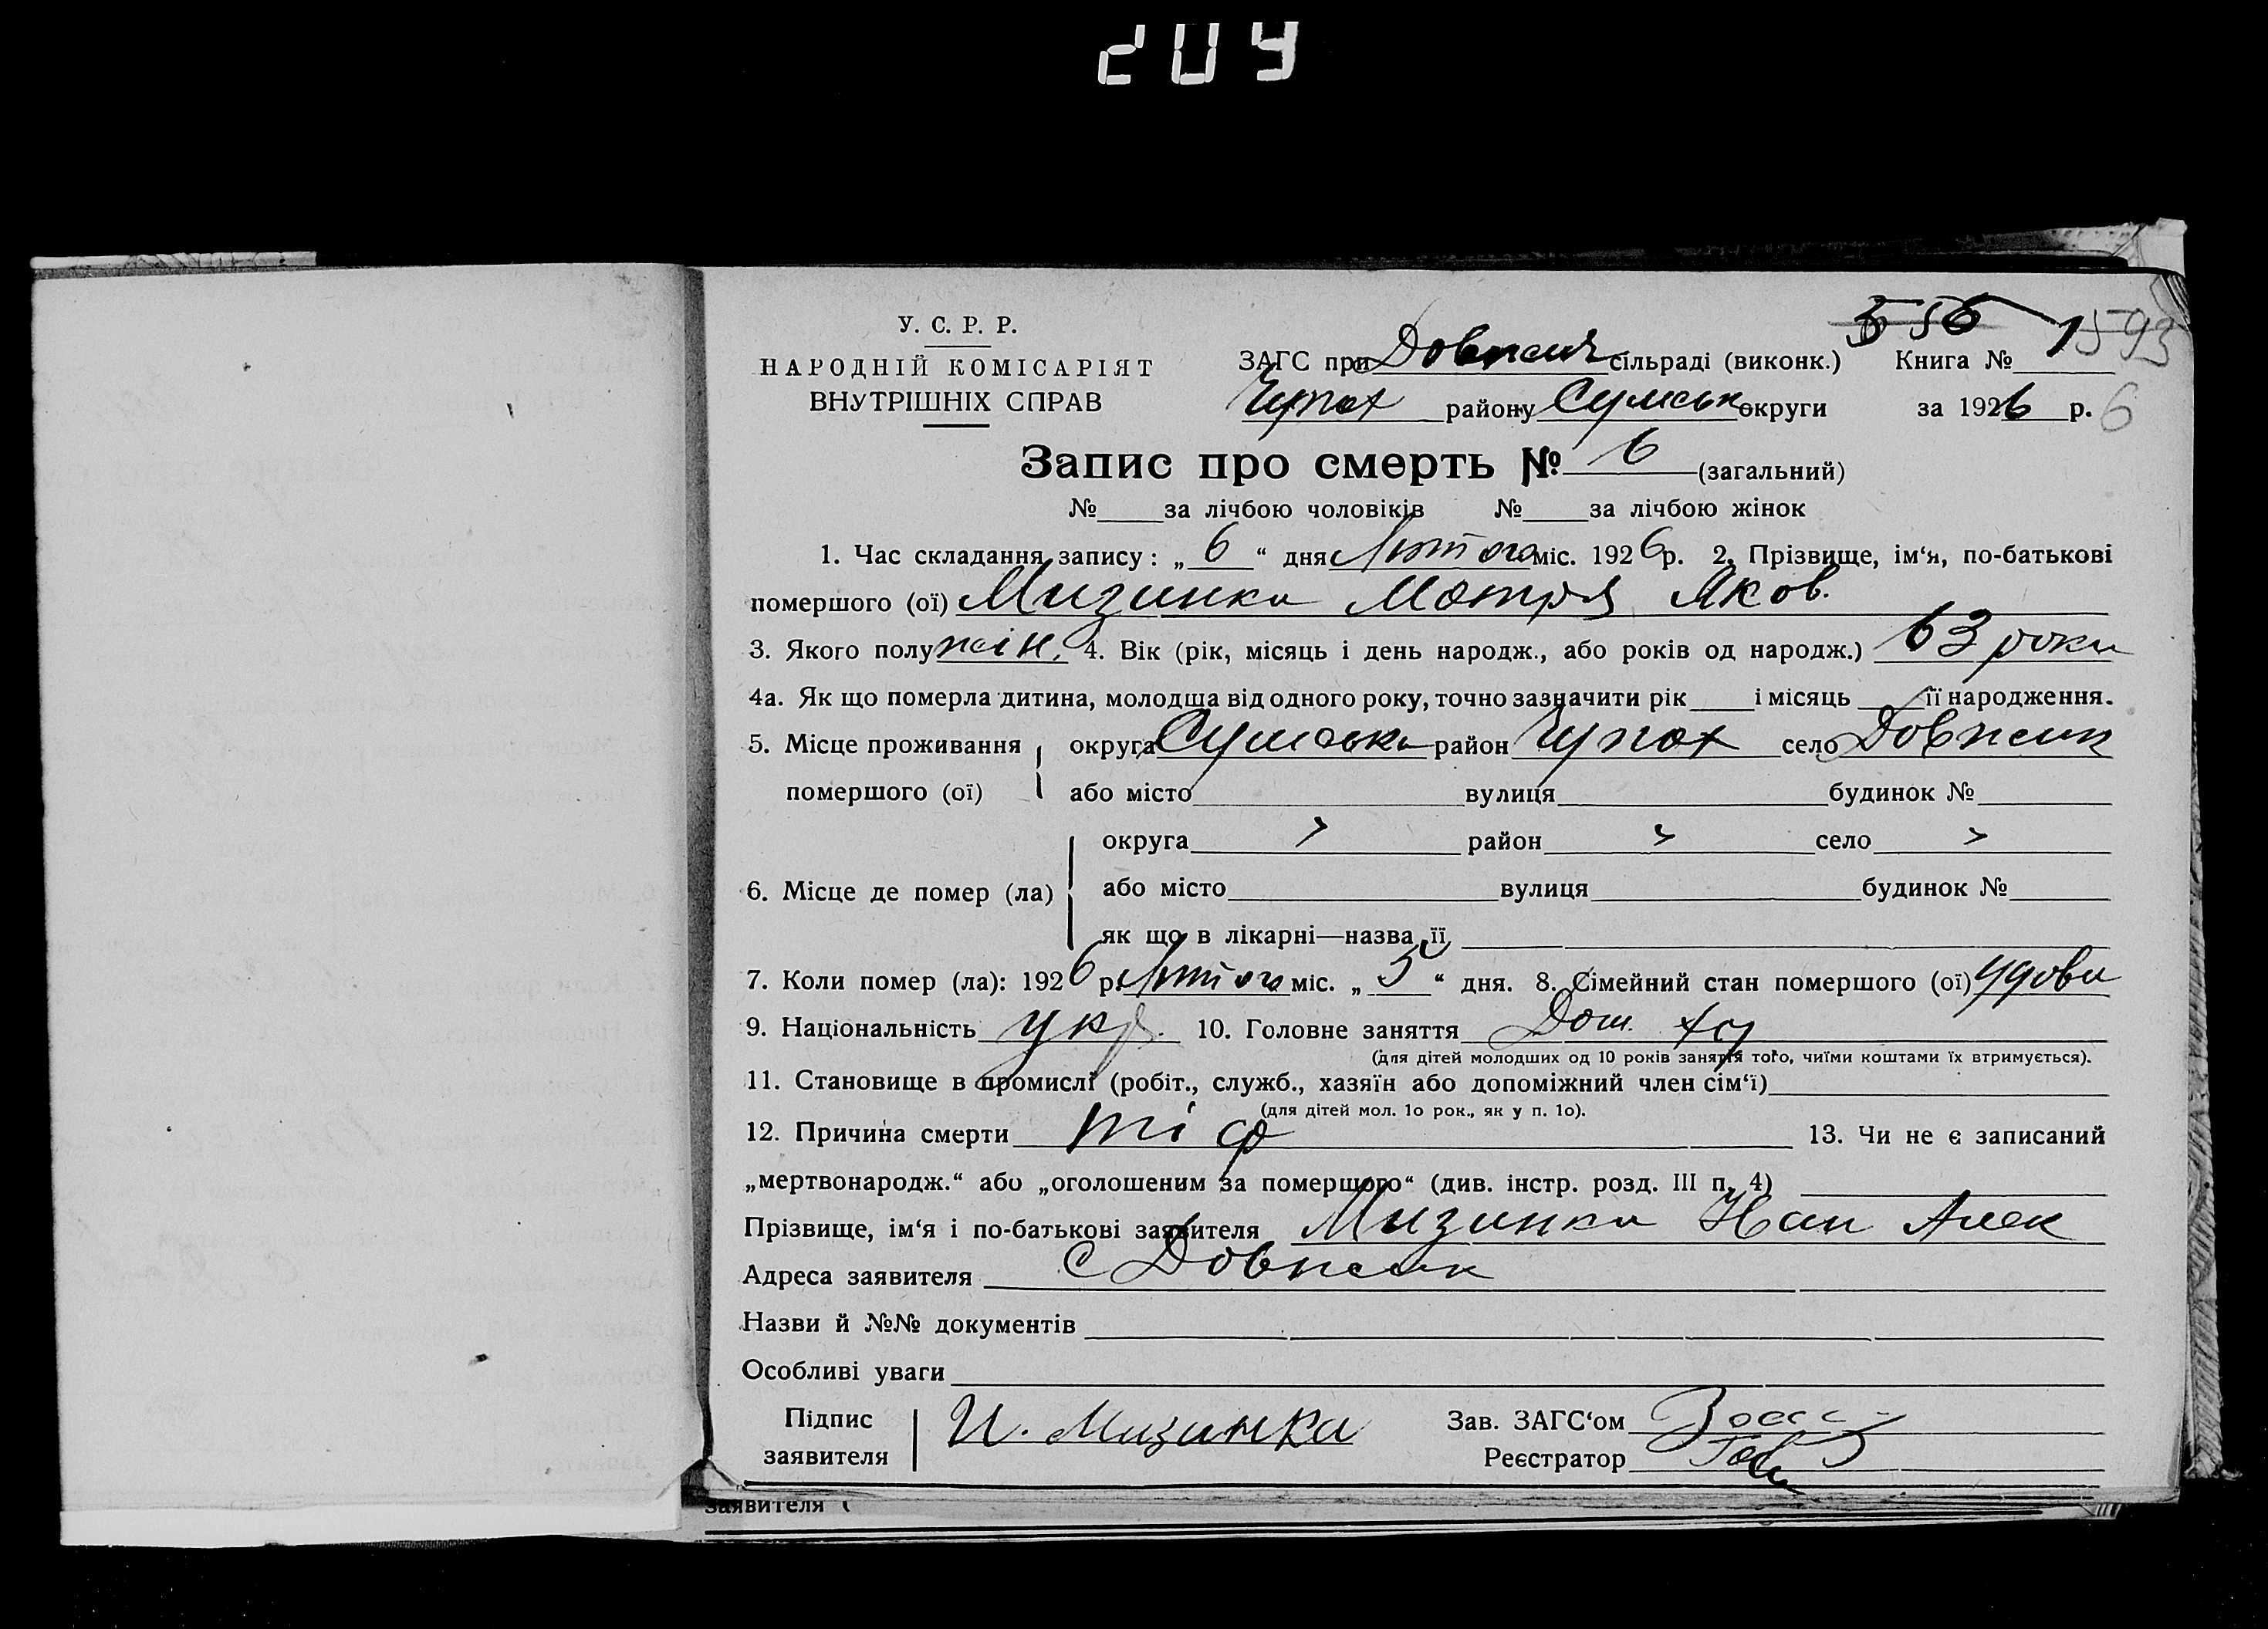 209
У. С. Р. Р.
НАРОДНІЙ КОМІСАРІЯТ
ВНУТРІШНІХ СПРАВ
556 1593
ЗАГС при Довжик сільраді (виконк.) Книга № 1
Чупах району Сумськ округи за 1926 р. 6
Запис про смерть № 6 (загальний)
№ за лічбою чоловіків № за лічбою жінок
1. Час складання запису: „6“ дня Лютого міс. 1926 р. 2. Прізвище, ім‘я, по-батькові
помершого (ої) Мизинка Мотря Яков.
3. Якого полу жін. 4. Вік (рік, місяць і день народж., або років од народж.) 63 роки
4а. Як що померла дитина, молодша від одного року, точно зазначити рік і місяць її народження.
5. Місце проживання округа Сумська район Чупах село Довжик
помершого (ої) або місто вулиця будинок №
округа район село
6. Місце де помер (ла) або місто вулиця будинок №
як що в лікарні—назва її
7. Коли помер (ла): 1926 р. Лютого міс. „5“ дня. 8. Сімейний стан помершого (ої) удова
9. Національність укр. 10. Головне заняття Дом. ху
(для дітей молодших од 10 років заняття того, чиїми коштами їх втримується).
11. Становище в промислі (робіт., служб., хазяїн або допоміжний член сім‘ї)
(для дітей мол. 1о рок., як у п. 1о).
12. Причина смерти тіф 13. Чи не є записаний
„мертвонародж.“ або „оголошеним за помершого“ (див. інстр. розд. III п. 4)
Прізвище, ім‘я і по-батькові заявителя Мизинка Иван Алек
Адреса заявителя с Довжик
Назви й №№ документів
Особливі уваги
Підпис заявителя И. Мизинка Зав. ЗАГС‘ом
Реєстратор
заявителя